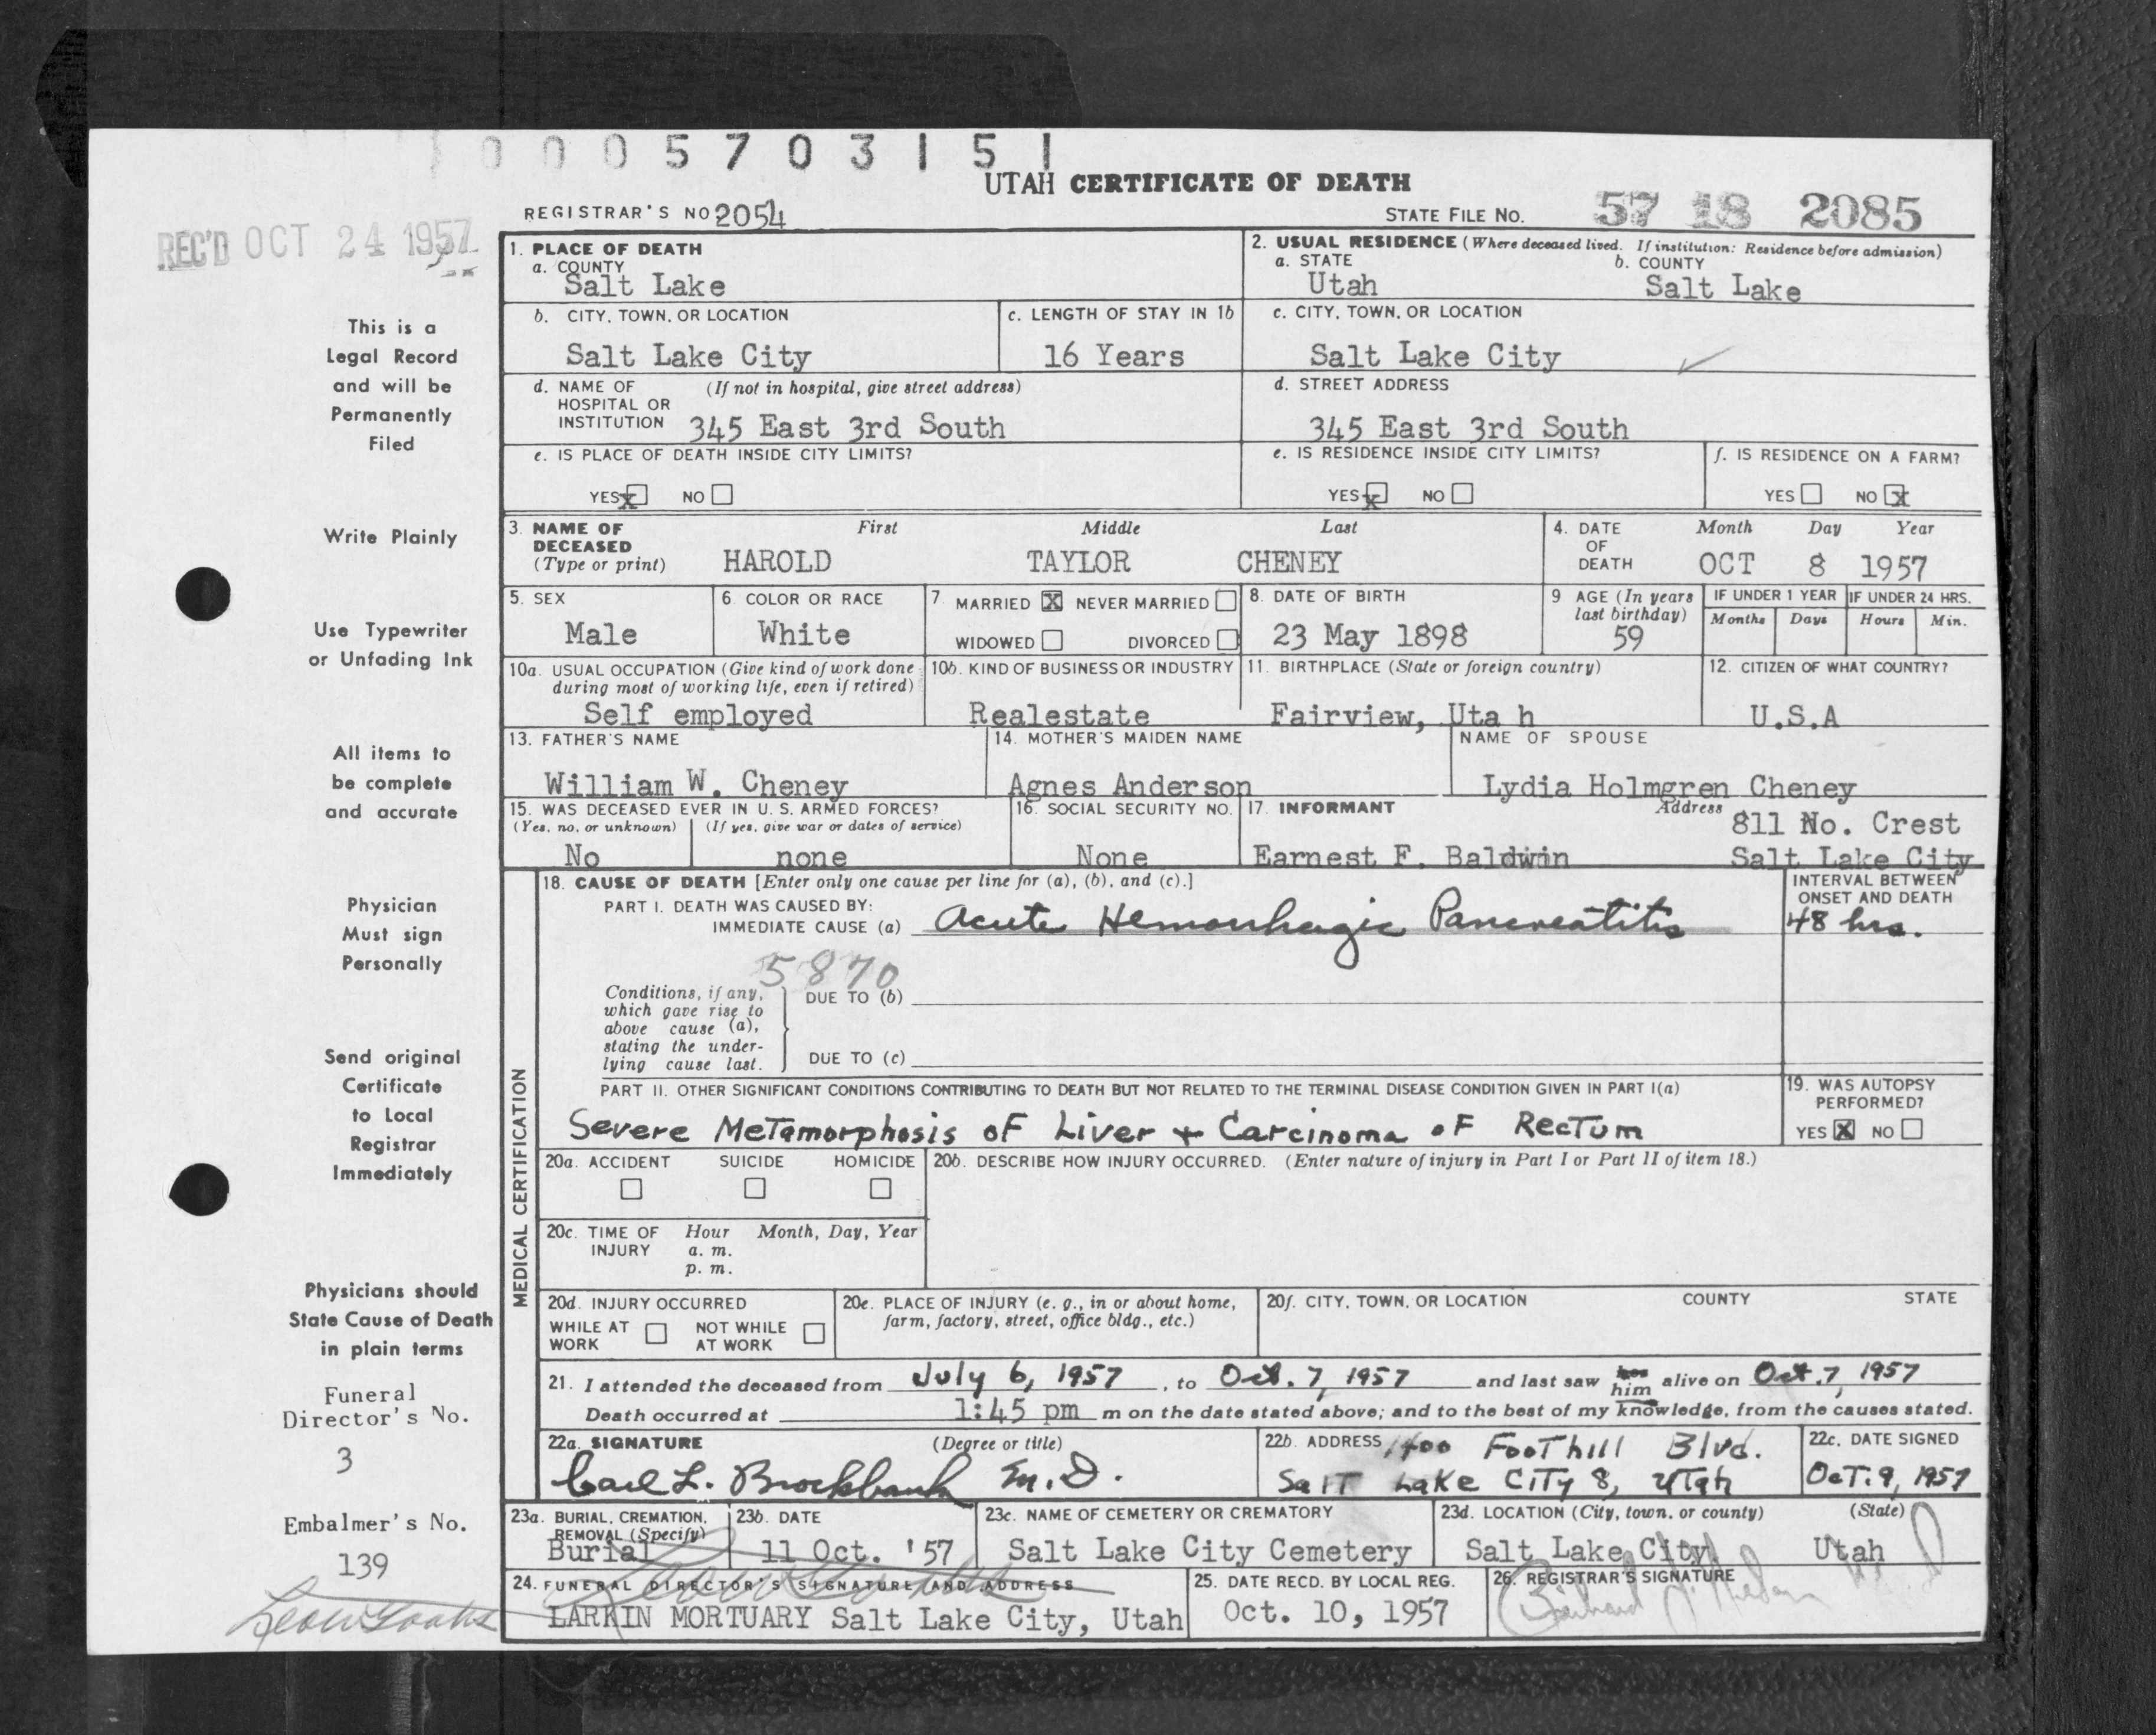 0005703151
UTAH CERTIFICATE OF DEATH
REGISTRAR'S NO 2054
STATE FILE NO. 57 18 2085
REC'D OCT 24 1957
1. PLACE OF DEATH
a. COUNTY
Salt Lake
2. USUAL RESIDENCE (Where deceased lived. If institution: Residence before admission)
a. STATE b. COUNTY
Utah Salt Lake
b. CITY, TOWN, OR LOCATION
Salt Lake City
c. LENGTH OF STAY IN 1b
16 Years
c. CITY, TOWN, OR LOCATION
Salt Lake City
d. NAME OF (If not in hospital, give street address)
HOSPITAL OR
INSTITUTION 345 East 3rd South
d. STREET ADDRESS
345 East 3rd South
e. IS PLACE OF DEATH INSIDE CITY LIMITS?
YES x NO
e. IS RESIDENCE INSIDE CITY LIMITS?
YES x NO
f. IS RESIDENCE ON A FARM?
YES NO x
3. NAME OF First Middle Last
DECEASED
(Type or print) HAROLD TAYLOR CHENEY
4. DATE Month Day Year
OF
DEATH OCT 8 1957
5. SEX
Male
6. COLOR OR RACE
White
7. MARRIED X NEVER MARRIED
WIDOWED DIVORCED
8. DATE OF BIRTH
23 May 1898
9 AGE (In years
last birthday)
59
IF UNDER 1 YEAR IF UNDER 24 HRS.
Months Days Hours Min.
10a. USUAL OCCUPATION (Give kind of work done
during most of working life, even if retired)
Self employed
10b. KIND OF BUSINESS OR INDUSTRY
Realestate
11. BIRTHPLACE (State or foreign country)
Fairview, Uta h
12. CITIZEN OF WHAT COUNTRY?
U.S.A
13. FATHER'S NAME
William W. Cheney
14. MOTHER'S MAIDEN NAME
Agnes Anderson
NAME OF SPOUSE
Lydia Holmgren Cheney
15. WAS DECEASED EVER IN U. S. ARMED FORCES?
(Yes, no, or unknown) (If yes, give war or dates of service)
No none
16. SOCIAL SECURITY NO.
None
17. INFORMANT Address
811 No. Crest
Earnest F. Baldwin Salt Lake City
18. CAUSE OF DEATH [Enter only one cause per line for (a), (b), and (c).]
INTERVAL BETWEEN
ONSET AND DEATH
PART I. DEATH WAS CAUSED BY:
IMMEDIATE CAUSE (a) Acute Hemorrhagic Pancreatitis 48 hrs.
5870
Conditions, if any,
which gave rise to
above cause (a),
stating the under-
lying cause last.
DUE TO (b)
DUE TO (c)
PART II. OTHER SIGNIFICANT CONDITIONS CONTRIBUTING TO DEATH BUT NOT RELATED TO THE TERMINAL DISEASE CONDITION GIVEN IN PART I(a)
Severe Metamorphosis of Liver + Carcinoma of Rectum
19. WAS AUTOPSY
PERFORMED?
YES X NO
MEDICAL CERTIFICATION
20a. ACCIDENT SUICIDE HOMICIDE
20b. DESCRIBE HOW INJURY OCCURRED. (Enter nature of injury in Part I or Part II of item 18.)
20c. TIME OF Hour Month, Day, Year
INJURY a. m.
p. m.
20d. INJURY OCCURRED
WHILE AT NOT WHILE
WORK AT WORK
20e. PLACE OF INJURY (e. g., in or about home,
farm, factory, street, office bldg., etc.)
20f. CITY, TOWN, OR LOCATION COUNTY STATE
21. I attended the deceased from July 6, 1957, to Oct. 7, 1957 and last saw her him alive on Oct. 7, 1957
Death occurred at 1:45 pm m on the date stated above; and to the best of my knowledge, from the causes stated.
22a. SIGNATURE (Degree or title)
Carl L. Brockbank M.D.
22b. ADDRESS 1400 Foothill Blvd.
Salt Lake City 8, Utah
22c. DATE SIGNED
Oct. 9, 1957
23a. BURIAL, CREMATION,
REMOVAL (Specify)
Burial
23b. DATE
11 Oct. '57
23c. NAME OF CEMETERY OR CREMATORY
Salt Lake City Cemetery
23d. LOCATION (City, town, or county) (State)
Salt Lake City Utah
24. FUNERAL DIRECTOR'S SIGNATURE AND ADDRESS
LARKIN MORTUARY Salt Lake City, Utah
25. DATE RECD. BY LOCAL REG.
Oct. 10, 1957
26. REGISTRAR'S SIGNATURE
This is a
Legal Record
and will be
Permanently
Filed
Write Plainly
Use Typewriter
or Unfading Ink
All items to
be complete
and accurate
Physician
Must sign
Personally
Send original
Certificate
to Local
Registrar
Immediately
Physicians should
State Cause of Death
in plain terms
Funeral
Director's No.
3
Embalmer's No.
139